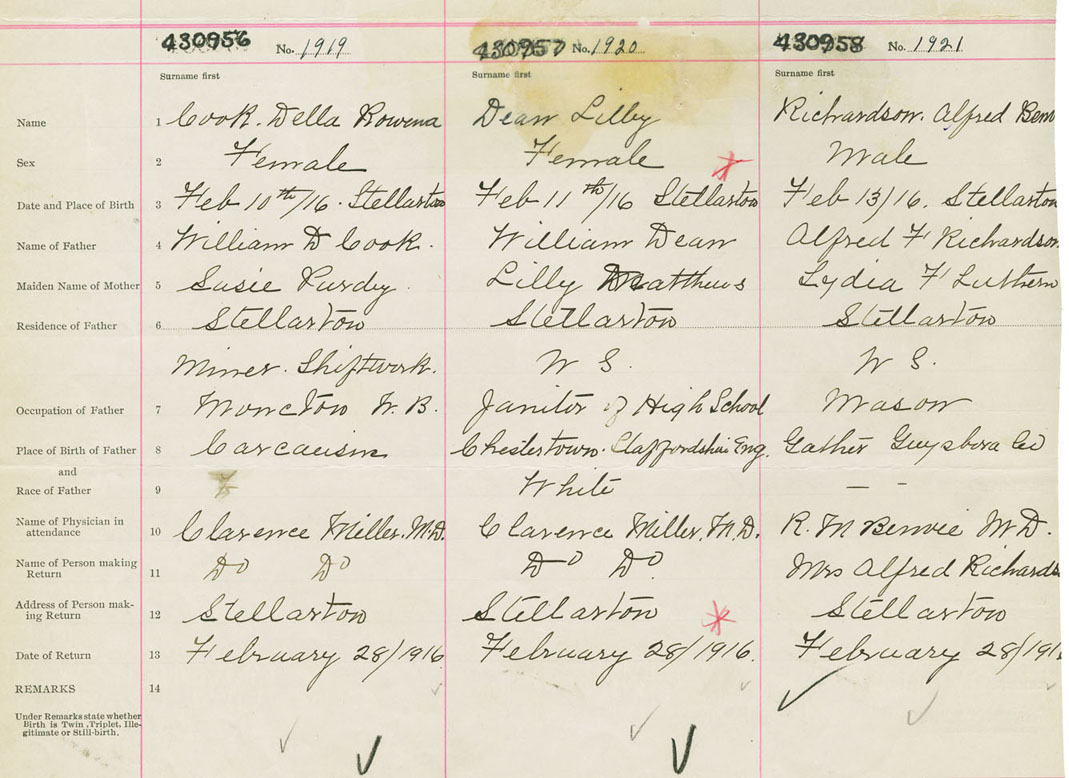 430956 No. 1919 430957 No. 1920 430958 No. 1921
Surname first Surname first Surname first
Name 1 Cook. Della Rowena Dean Lilly Richardson. Alfred Bem
Sex 2 Female Female Male
Date and Place of Birth 3 Feb 10th/16. Stellarton Feb 11th/16 Stellarton Feb 13/16. Stellarton
Name of Father 4 William D Cook. William Dean Alfred F Richardson
Maiden Name of Mother 5 Susie Purdy Lilly Matthews Lydia F Luthern
Residence of Father 6 Stellarton Stellarton Stellarton
Miner. Shiftwork. W S. W S.
Occupation of Father 7 Moncton N. B. Janitor of High School Mason
Place of Birth of Father 8 Carcausin Chestertown. Claffordshire Eng. Gather Guysboro Co
and
Race of Father 9 White — —
Name of Physician in
attendance 10 Clarence Miller. M.D. Clarence Miller. M.D. R. M Benvie M D.
Name of Person making
Return 11 Do Do Do Do Mrs Alfred Richards
Address of Person mak-
ing Return 12 Stellarton Stellarton Stellarton
Date of Return 13 February 28/1916 February 28/1916. February 28/191
REMARKS 14
Under Remarks state whether
Birth is Twin, Triplet, Ille-
gitimate or Still-birth.